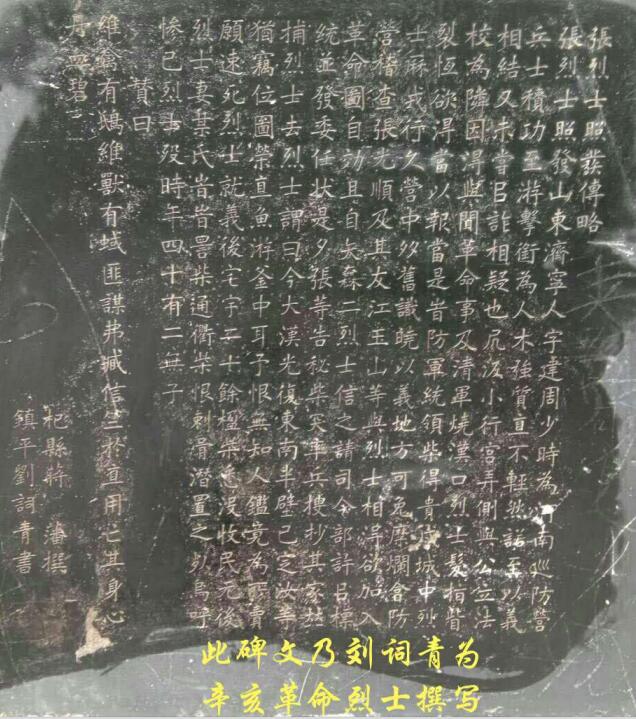 張烈士照發傳略
張烈士照發山東濟寧人字建周少時為河南巡防營
兵士積功至游擊銜為人木強質直不輕然諾至以義
相結又未嘗以詐相疑也尻汴小行宮弄側與公立法
校為隣因得與聞革命事及清軍燒漢口烈士髮指眥
裂恆欲得當以報當是昔防軍統領柴得貴戍城中烈
士麻戎行久營中多舊識曉以義地方可免糜爛會防
營稽查張光順及其友江玉山等與烈士相得欲加入
革命圖自効且自矢森二烈士信之請司令部許以標
統並發委任狀是夕張等告秘柴突率兵搜抄其家並
捕烈士去烈士謂曰今大漢光復東南半壁已定汝輩
猶竊位圖榮直魚游釜中耳予恨無知人鑑竟為所賣
願速死烈士就義後宅宇二十餘極柴悉沒收民元後
烈士妻葉氏昔昔詈柴通衢柴恨刺骨潛置之外烏呼
慘已烈士歿時年四十有二無子
贊曰
維禽有鵝維獸有蜮匪謀弗臧信竺於直用亡其身心
丹血碧
杞縣蔣藩撰
鎮平劉詞青書
此碑文乃刘词青为
辛亥革命烈士撰写